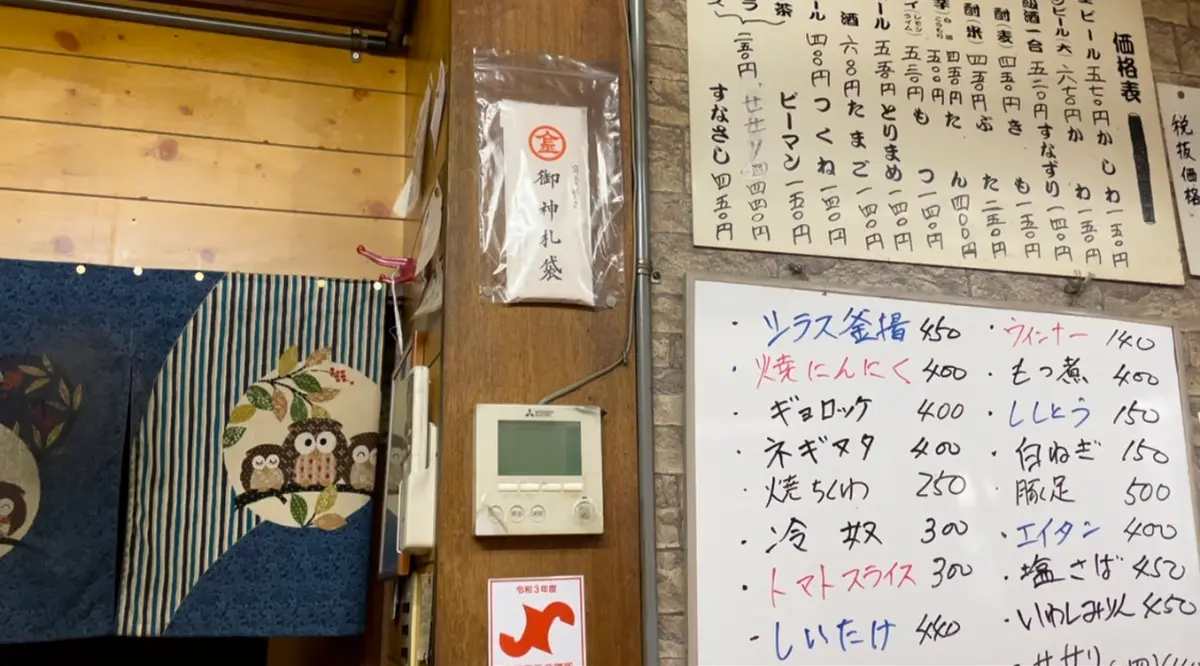 価格表
ビール 五七〇円
かしわ 一五〇円
ビール(大) 六七〇円
かわ 一五〇円
級酒一合 五二〇円
すなずり 一四〇円
酎(麦) 四五〇円
きも 一五〇円
酎(米) 四五〇円
ぶた 二五〇円
五五〇円
もつ 一四〇円
ール 五五〇円
とりまめ 一〇〇円
酒 六八〇円
たまご 一〇〇円
ール 四〇〇円
つくね 一四〇円
茶
ピーマン 一五〇円
二五〇円
せせり 四四〇円
すなさし 四五〇円
税抜価格
金
御神札袋
MITSUBISHI ELECTRIC
令和3年度
・シラス釜揚 450
・焼にんにく 400
・ギョロッケ 400
・ネギヌタ 400
・焼ちくわ 250
・冷奴 300
・トマトスライス 300
・しいたけ 440
・ウィンナー 140
・もつ煮 400
・ししとう 150
・白ねぎ 150
・豚足 500
・エイタン 400
・塩さば 450
・いわしみりん 450
・せせり